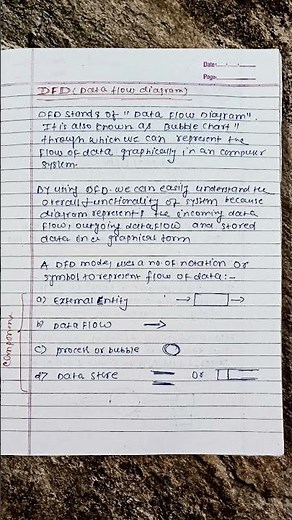 Date:
Page:
DFD (Data flow diagram)
DFD stands of "Data Flow Diagram".
It is also known as Bubble chart"
through which we can represent the
flow of data graphically in an computer
system.
By using DFD we can easily understand the
overall functionality of system because
diagram represents the incoming data
flow, outgoing dataflow and stored
data in a graphical form
A DFD model uses a no. of notation or
symbol to represent flow of data:-
Component
a) External Entity
b) Data Flow
c) process or bubble
d) Data store or